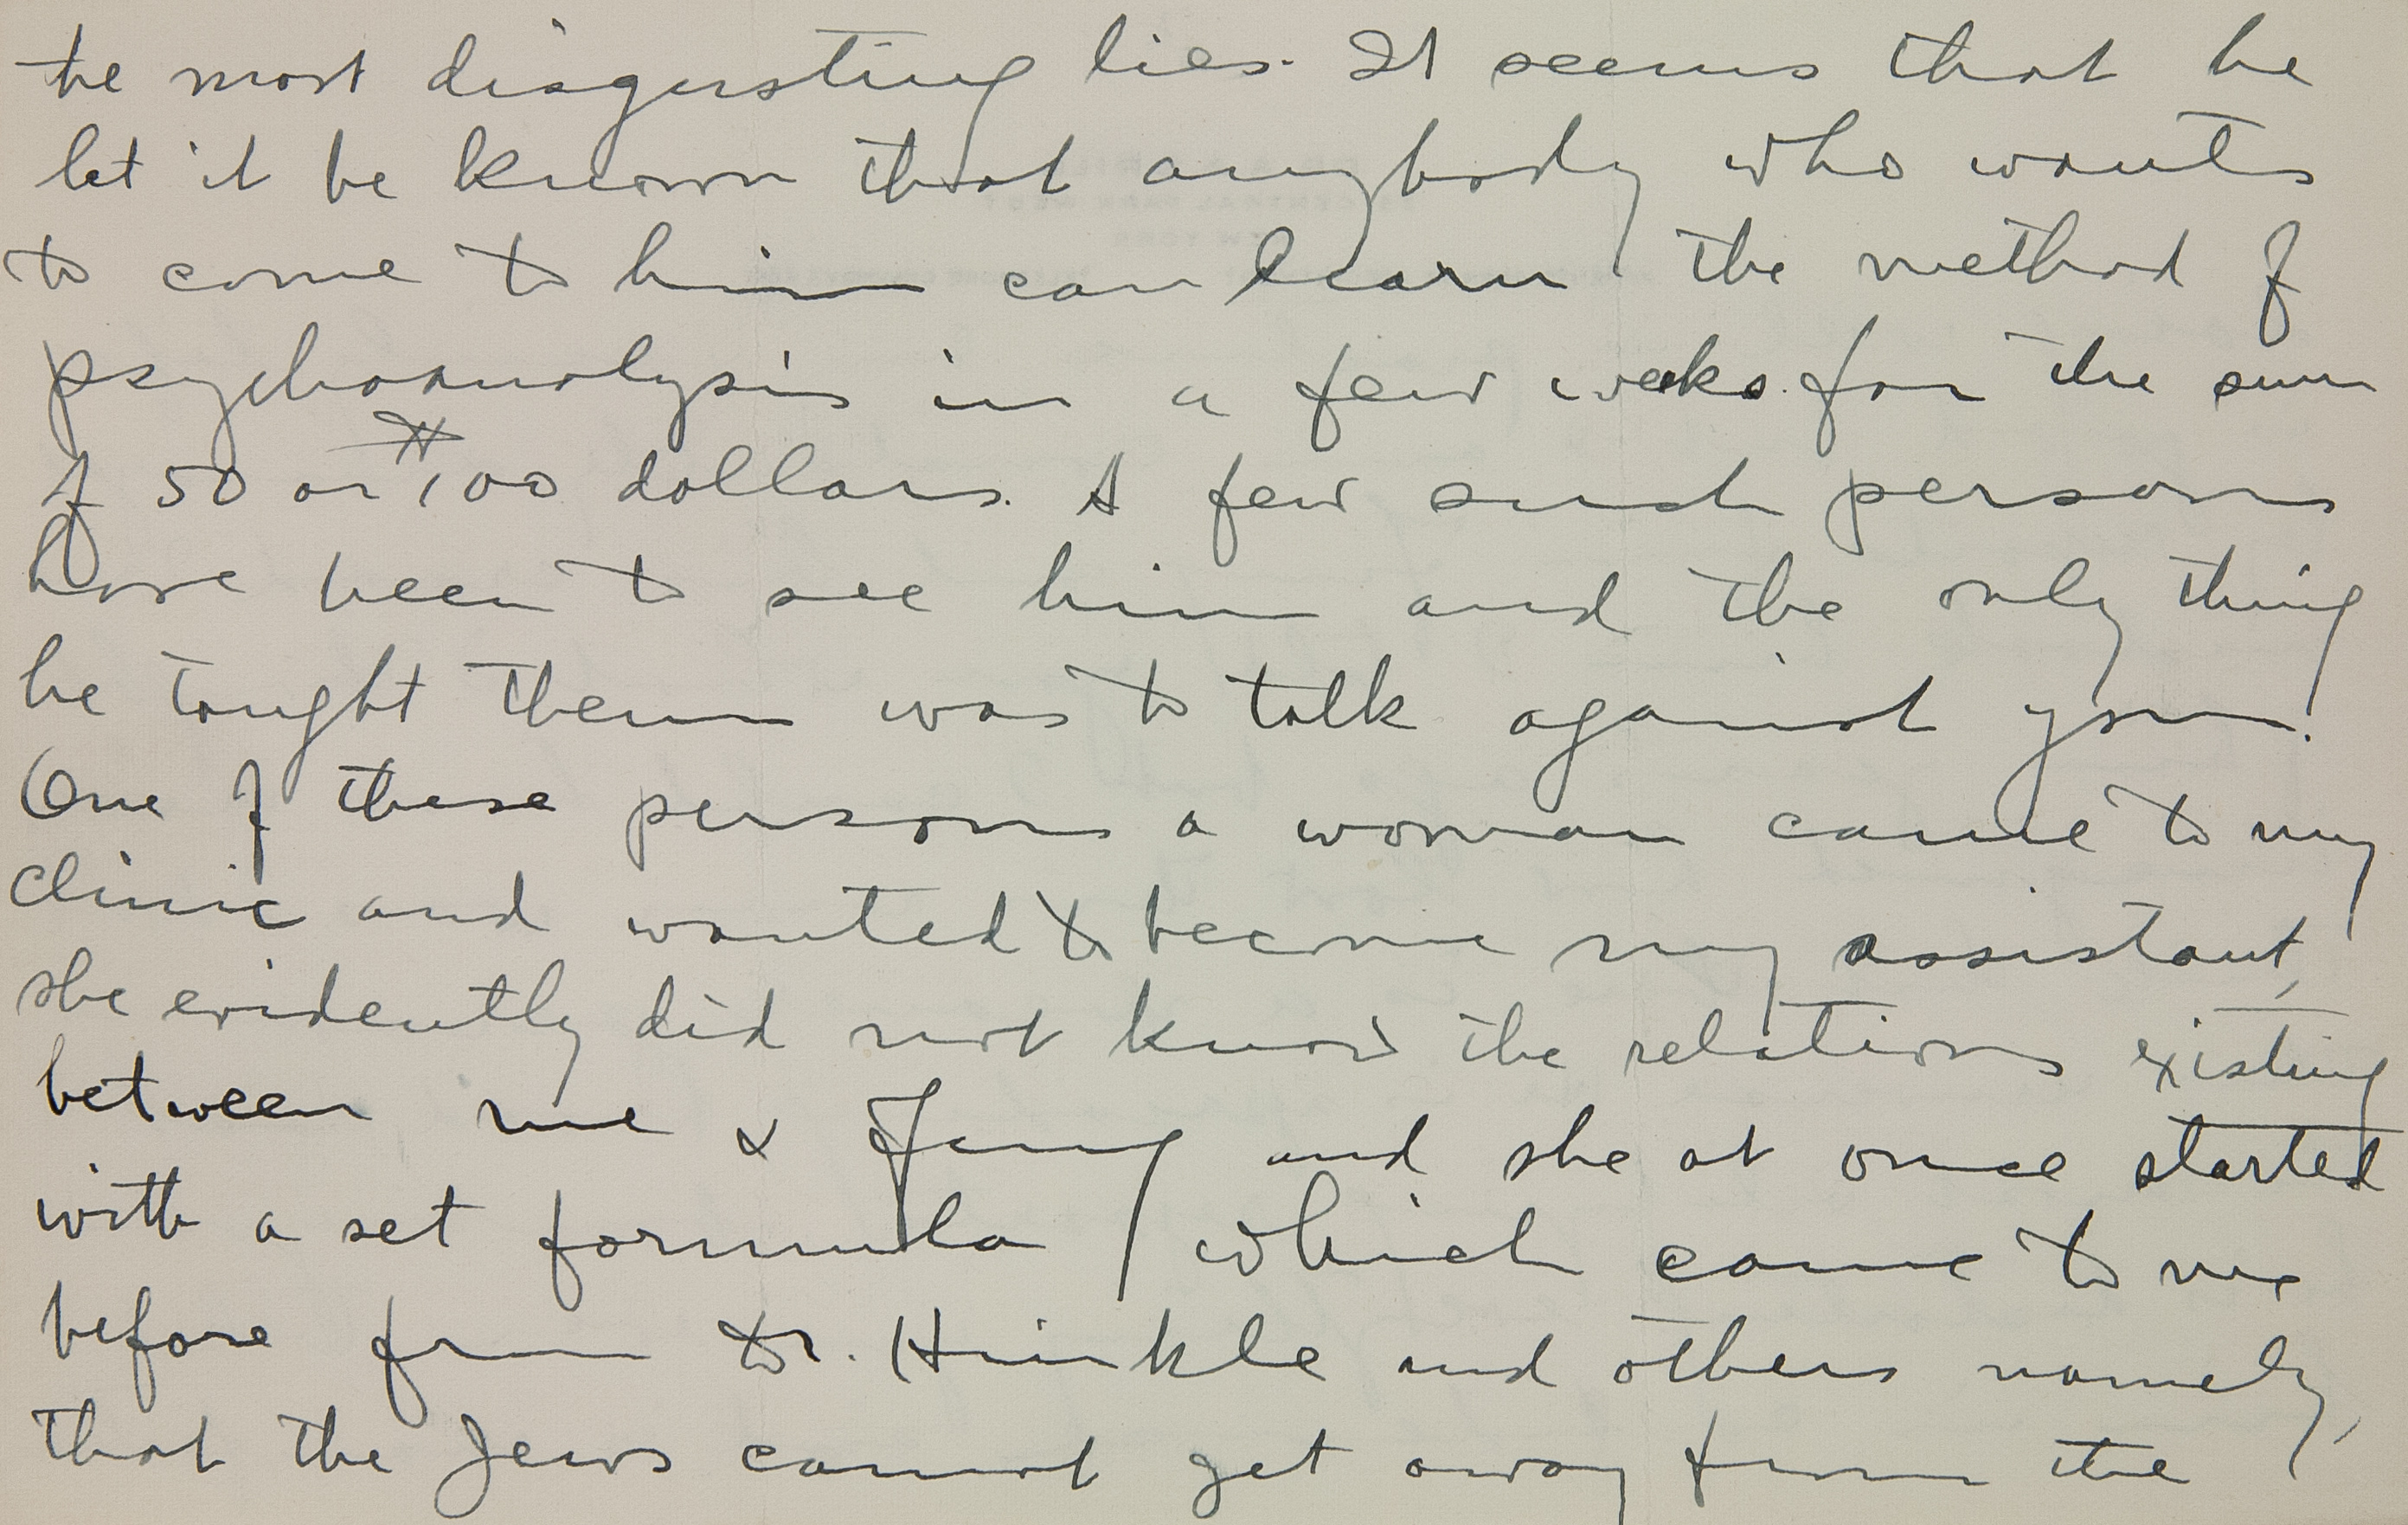 the most disgusting lies. It seems that he
let it be known that anybody who wants
to come to him can learn the method of
psychoanalysis in a few weeks for the sum
of 50 or 100 dollars. A few such persons
have been to see him and the only thing
he taught them was to talk against you.
One of these persons a woman came to my
clinic and wanted to become my assistant,
she evidently did not know the relations existing
between me & Jung and she at once started
with a set formula which came to me
before from Dr. Hinkle and others namely,
that the Jews cannot get away from the